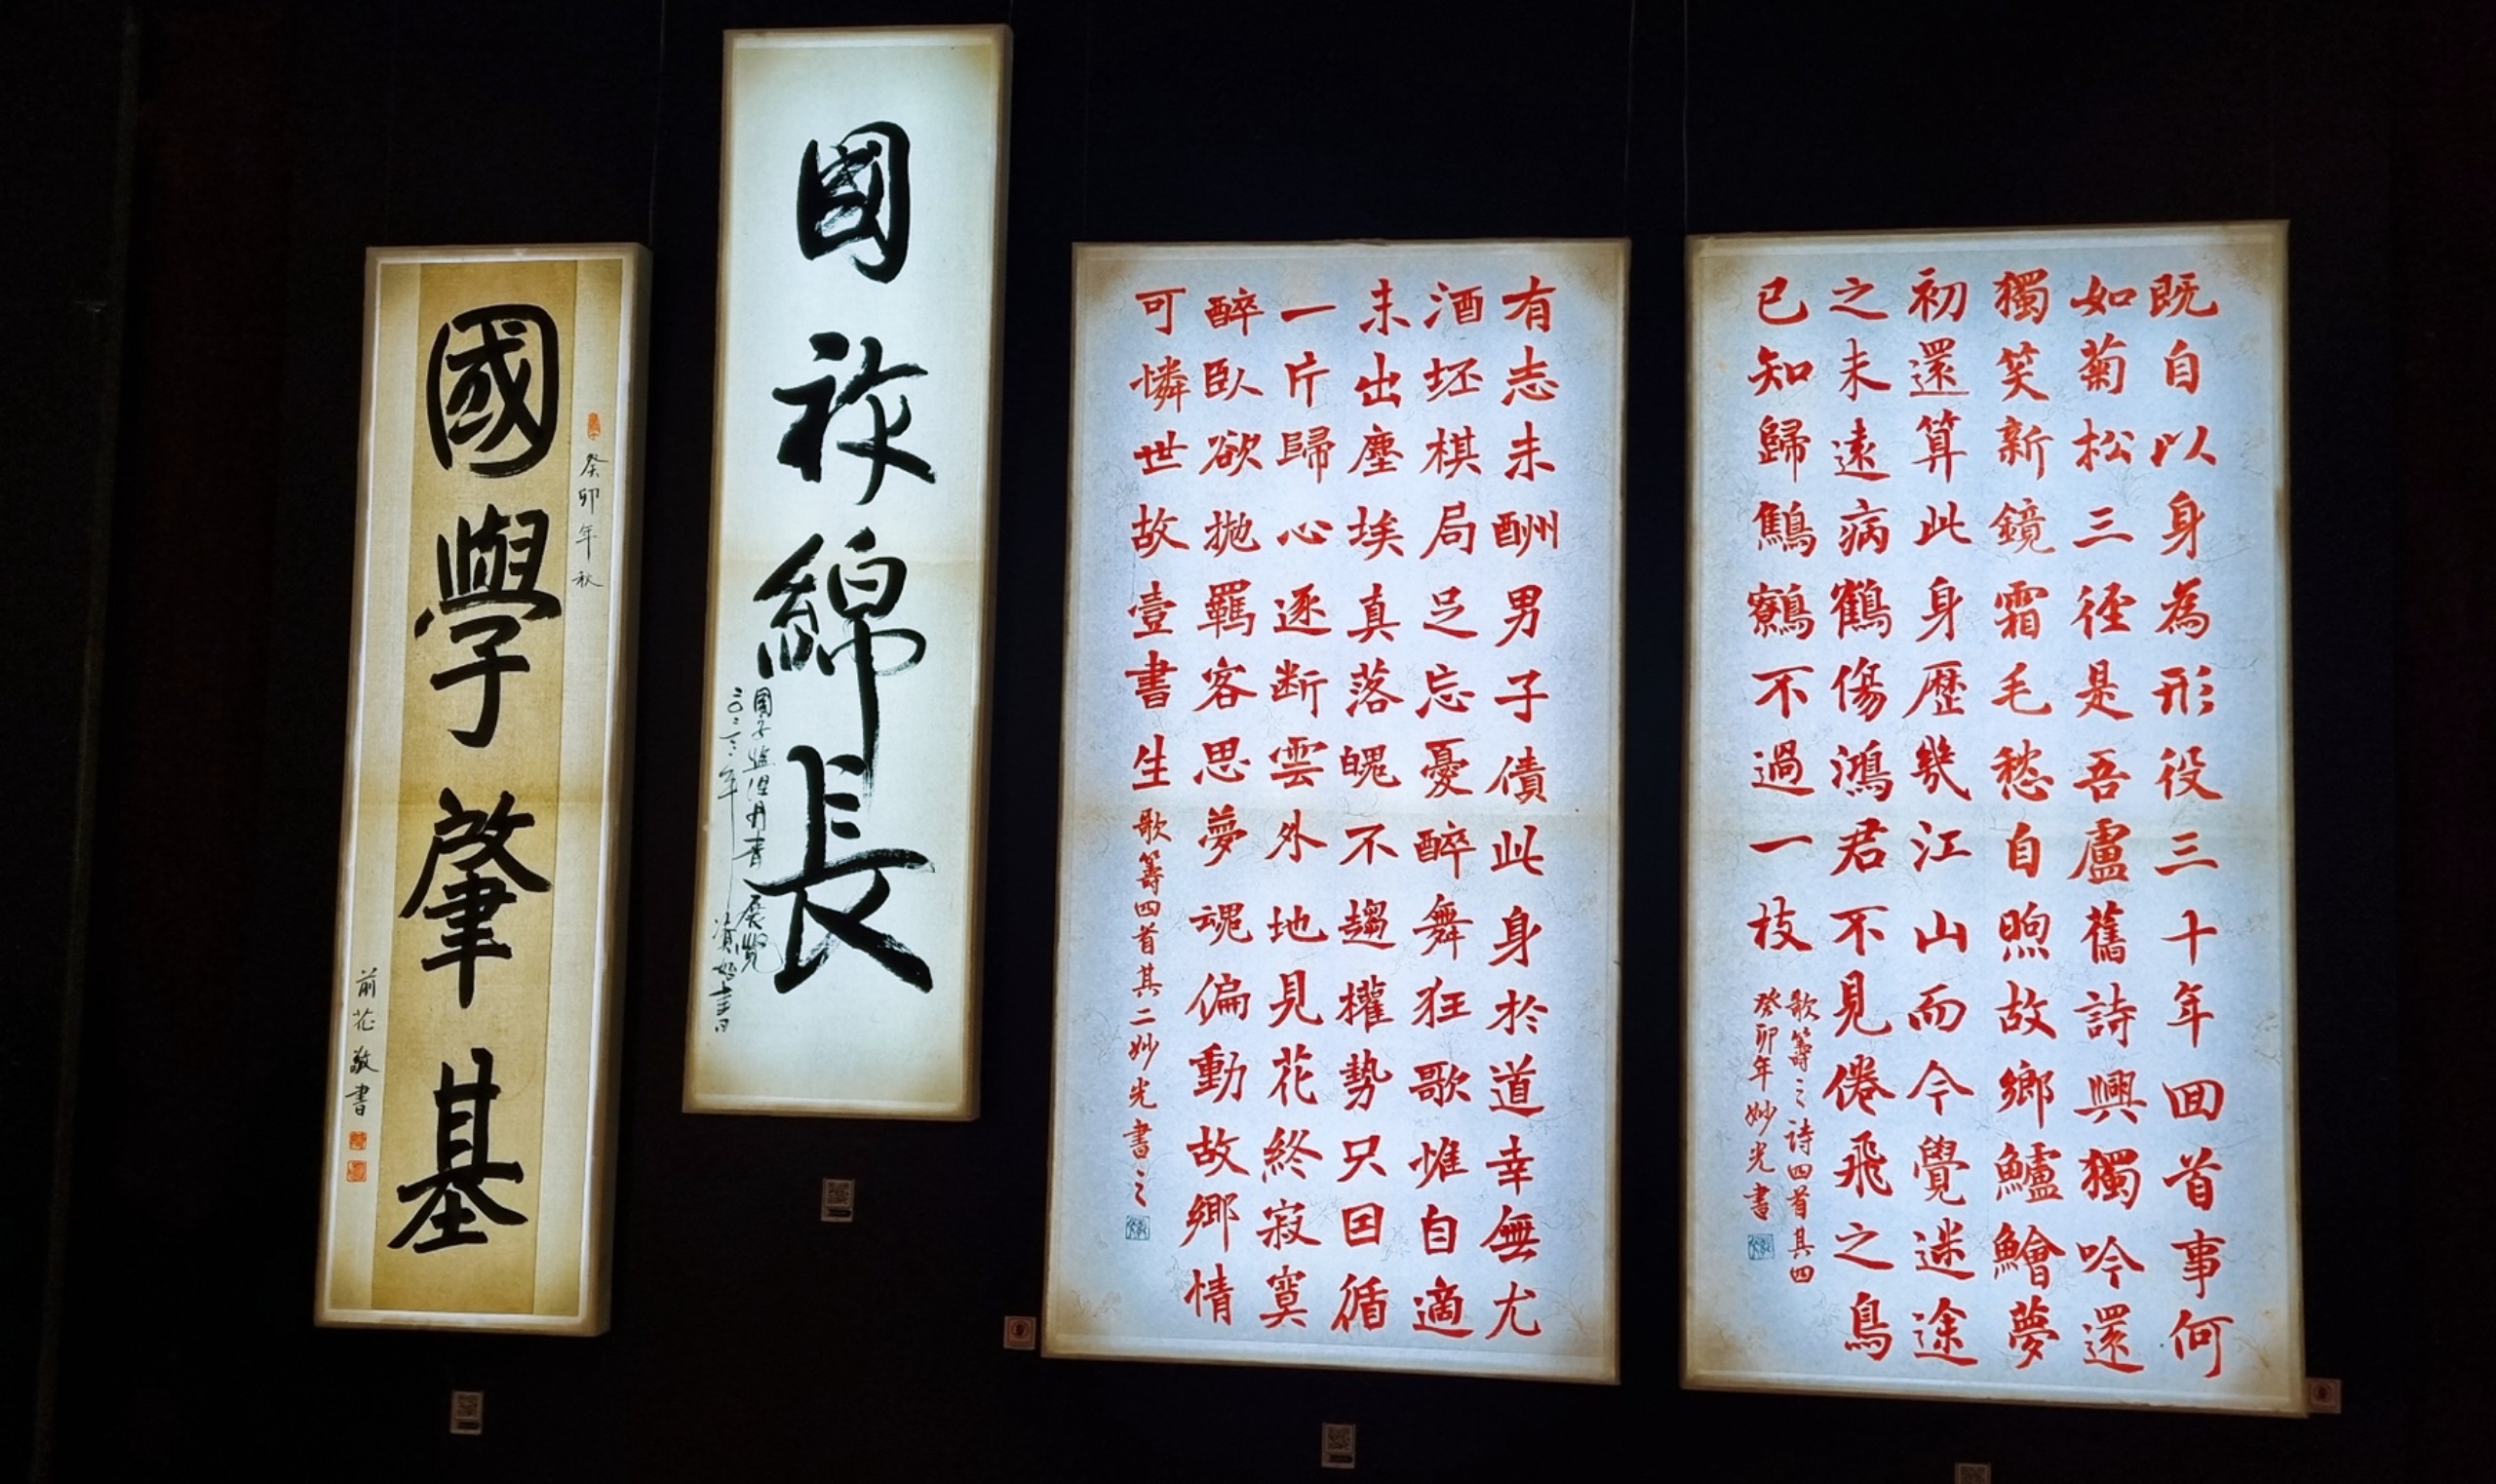 既自以身為形役三十年囬首事何
如菊松三徑是吾盧舊詩興獨吟還
獨笑新鏡霜毛愁自煦故鄉鱸鱠夢
初還算此身歷幾江山而今覺迷途
之未遠病鶴傷鴻君不見倦飛之鳥
已知歸鷦鷯不過一枝
歌籌之詩四首其四
癸卯年妙光書
有志未酬男子債此身於道幸無尤
酒坯棋局足忘憂醉舞狂歌惟自適
未出塵埃真落魄不趨權勢只因循
一片歸心逐断雲外地見花終寂寞
醉臥欲拋羈客思夢魂偏動故鄉情
可憐世故壹書生歌籌四首其二妙光書之
國祚綿長
二〇二三年
癸卯年秋
國學肇基
前花敬書